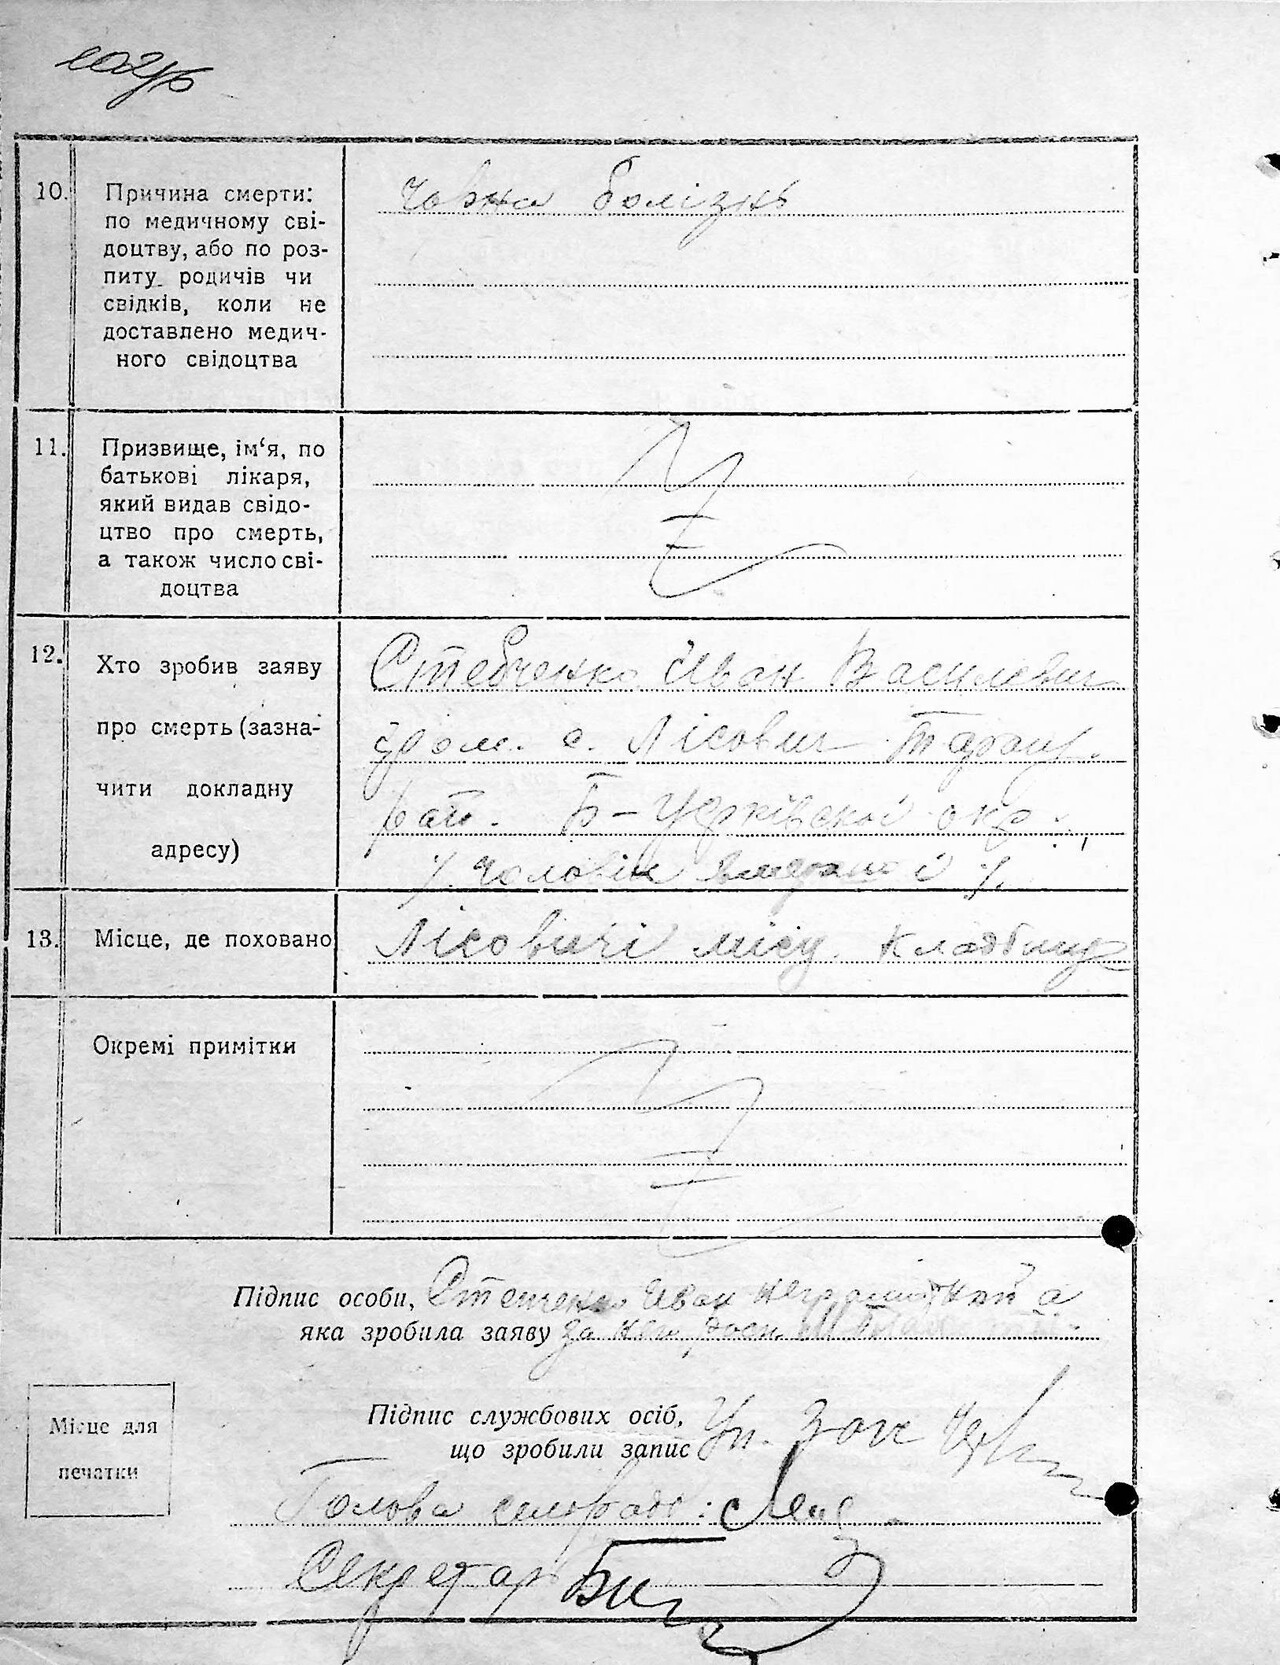 10.
Причина смерти:
по медичному сві-
доцтву, або по роз-
питу родичів чи
свідків, коли не
доставлено медич-
ного свідоцтва
болізнь
11.
Призвище, ім‘я, по
батькові лікаря,
який видав свідо-
цтво про смерть,
а також число сві-
доцтва
12.
Хто зробив заяву
про смерть (зазна-
чити докладну
адресу)
Іван Василевич
с. Лісович Таращ.
рай. Б-Церківської окр.
чоловік
13.
Місце, де поховано
Лісовичі місц. кладбищ
Окремі примітки
Підпис особи,
яка зробила заяву
Іван
за
Підпис службових осіб,
що зробили запис
Уп. Загс
Місце для
печатки
Голова сельради:
Секретар